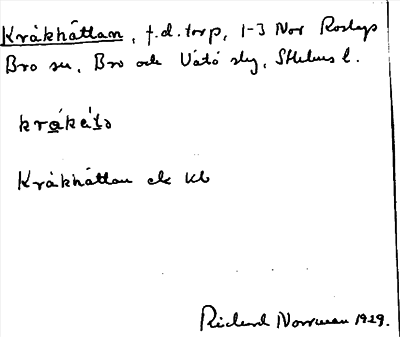 Kråkhättan, f.d. torp, 1-3 Nor Roslags
Bro sn, Bro och Vätö slg, Sthlms l.
kråkäta
Kråkhättan ek kb
Rickard Norrman 1929.